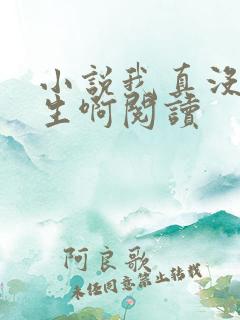 小說我真没
生啊閱讀
阿良歌
未经同意禁止转载